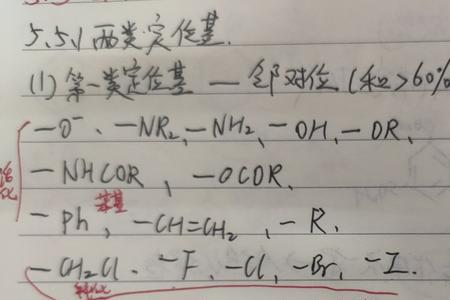 5.5.1 两类定位基.
(1) 第一类定位基 — 邻对位 (和>60%
—O⁻、—NR₂、—NH₂、—OH、—OR、
活化
—NHCOR、—OCOR、
—Ph, 苯基 —CH=CH₂, —R,
—CH₂Cl、—F、—Cl、—Br、—I.
钝化